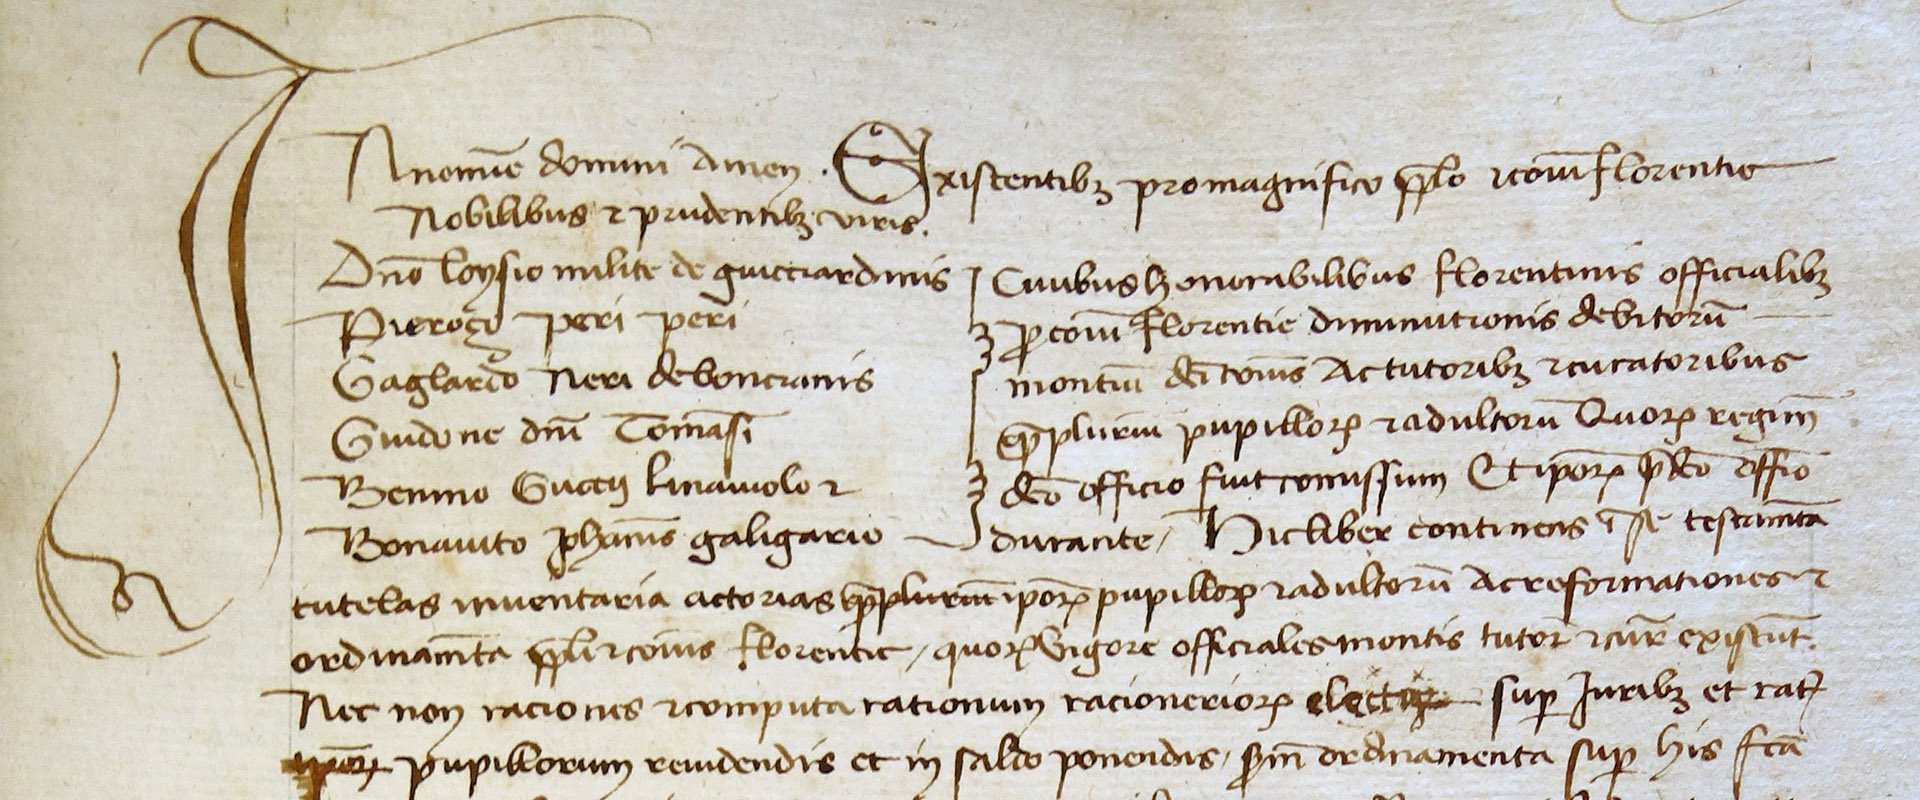 In nomine domini Amen. Existentibꝫ pro magnifico pplo ⁊ com̄ florentie
Nobilibus ⁊ prudentibꝫ viris.
Dn̄o loysio milite de guicciardinis
Pierozo peri peri
Gagliardo Neri de boncianis
Guidone dn̄i Tomasi
Benino Guccij linaiuolo ⁊
Bonaiuto Johan̄is galigario
Ciuibus honorabilibus florentinis officialibꝫ
ꝓ com̄ florentie diminutionis debitorū
montiū dc̄i com̄is Ac tutoribꝫ ⁊ curatoribus
qᷓmplurium pupilloꝝ ⁊ adultorū Quoꝝ regim̄
dc̄o officio fuit comissum Et ipoꝝ p̄dc̄o offitio
durante / Hic liber continens in se testam̄ta
tutelas inuentaria actorias ipoꝝ pupilloꝝ ⁊ adultorū Ac reformationes ⁊
ordinam̄ta ppli ⁊ com̄is florentie / quoꝝ vigore officiales montis tutor̄ ⁊ cur̄ existūt.
Nec non raciones ⁊ computa rationum racionerioꝝ sup Juribꝫ et rat
pupillorum reuidendis et in saldo ponendis / scd̄m ordinamenta sup his fc̄a